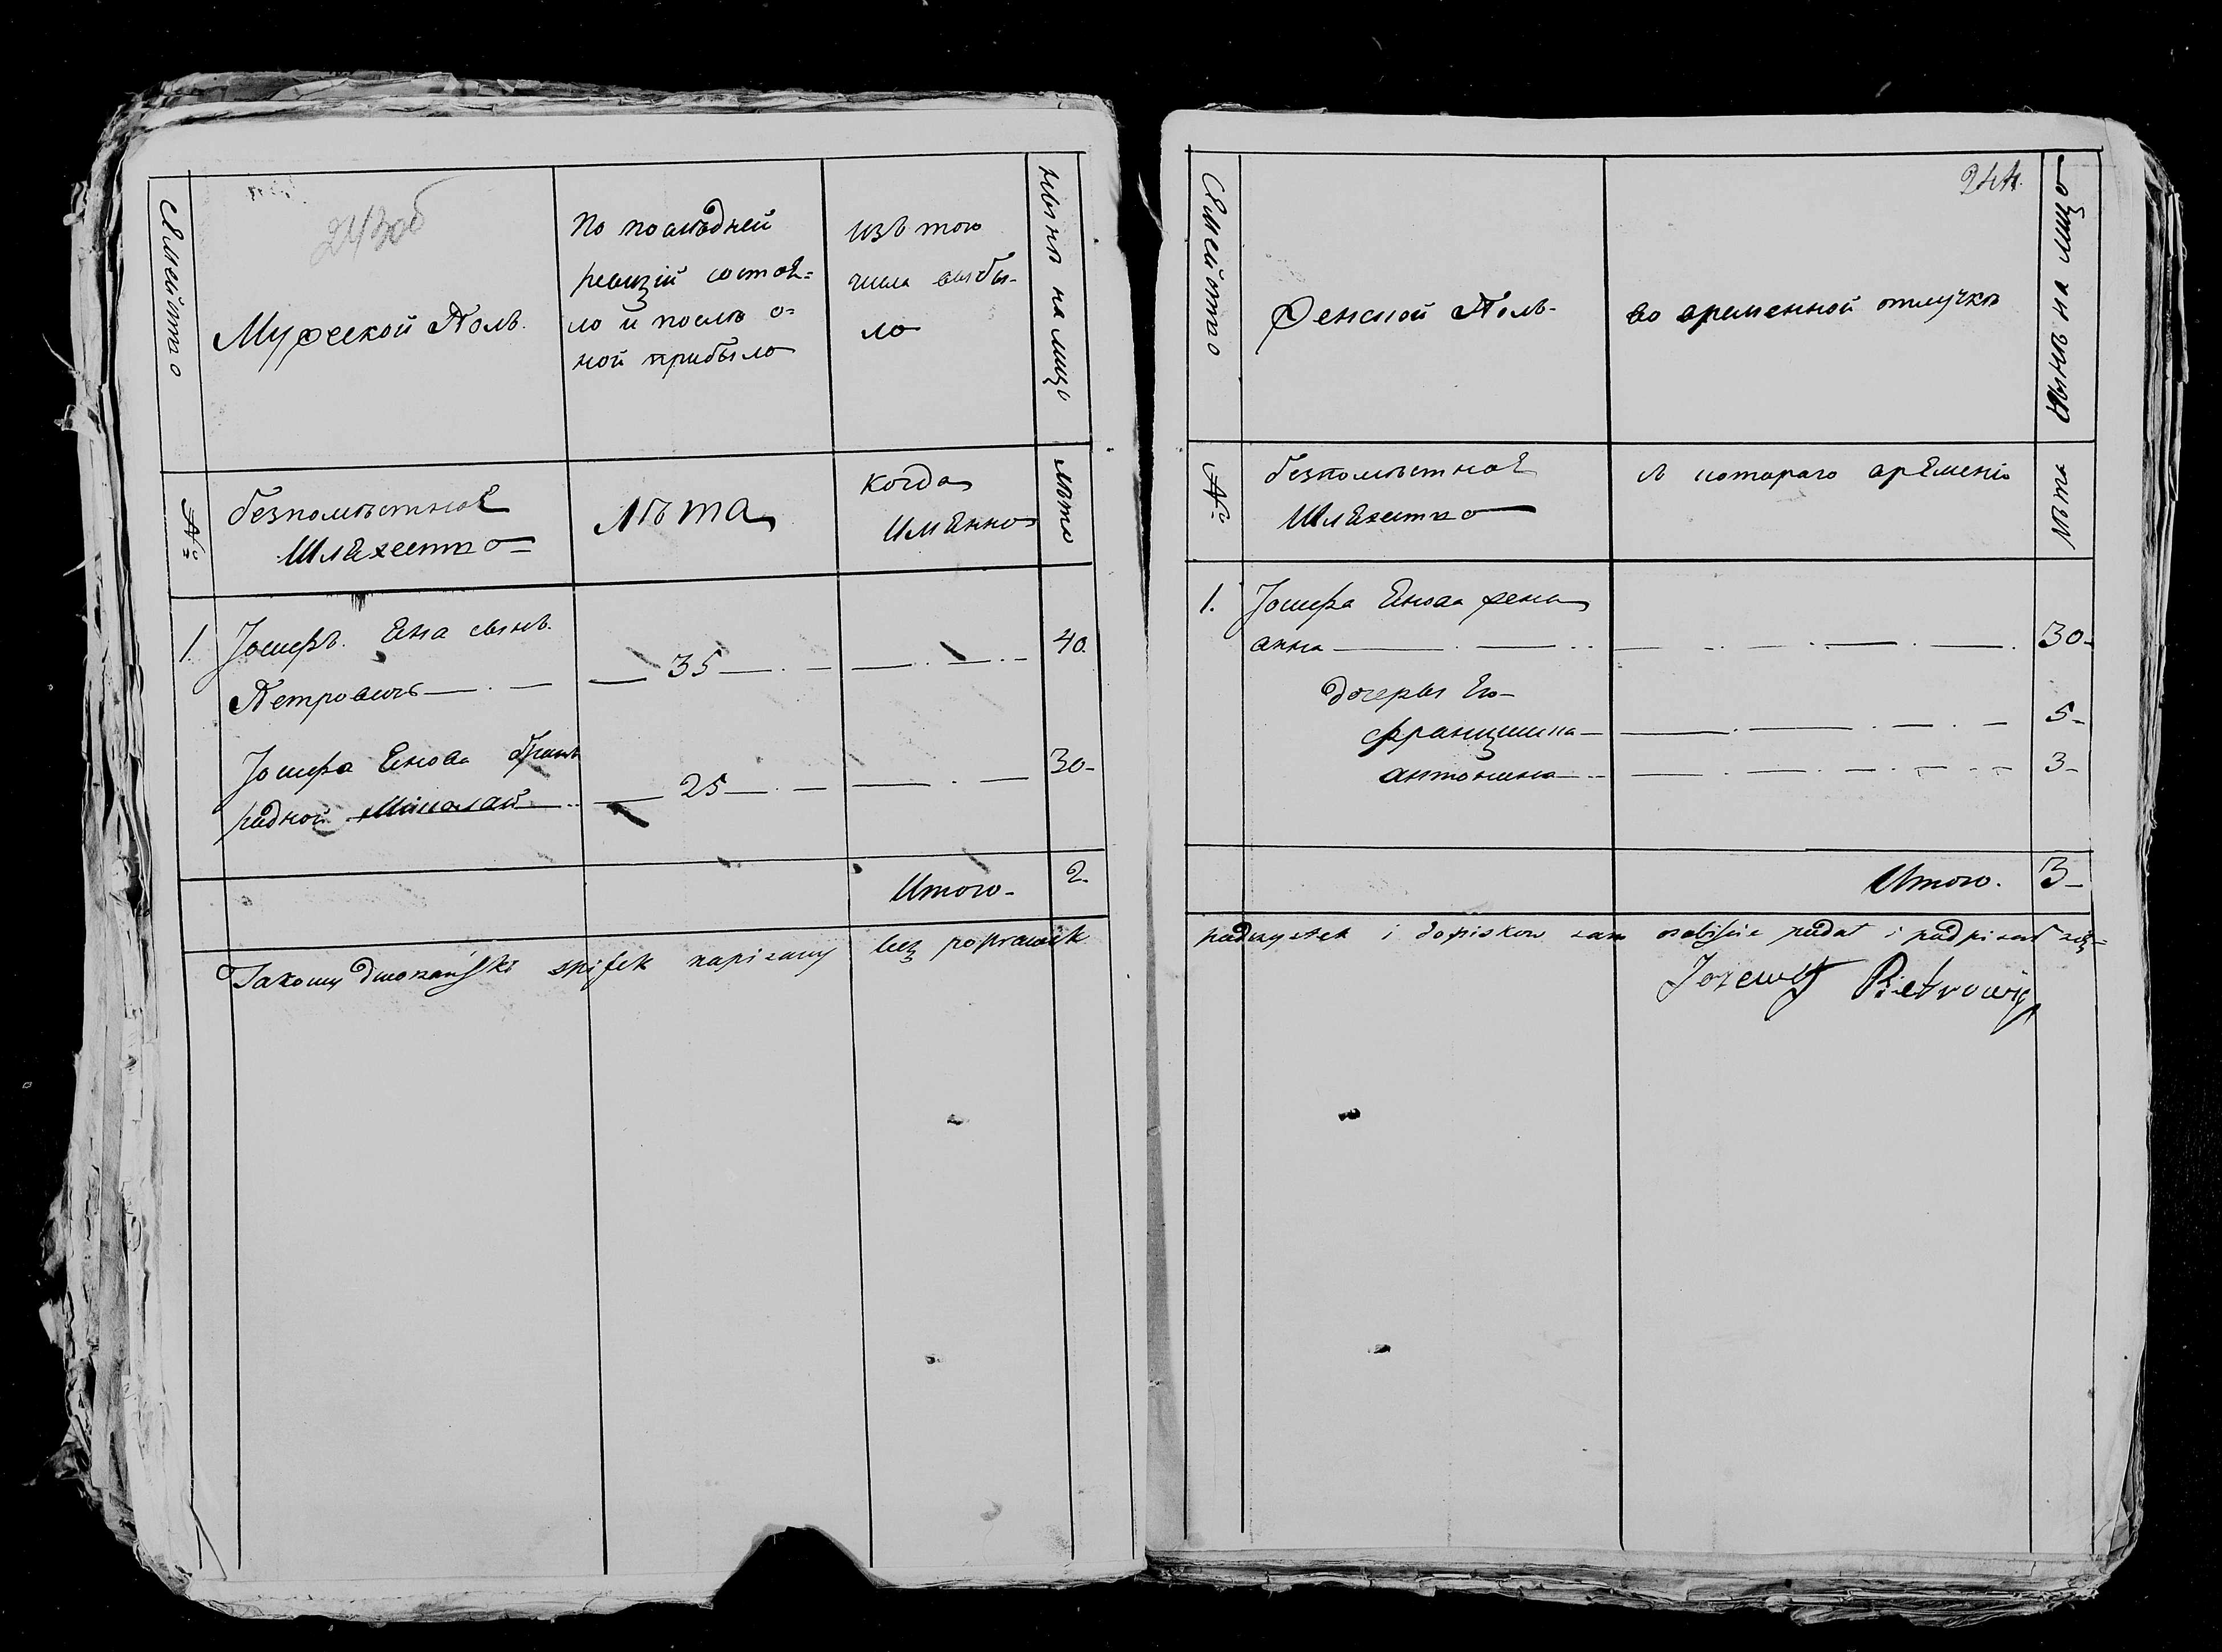 243об
Семейство
Мужеской Полъ.
По последней
ревизіи состоя=
ло и послѣ о=
ной прибыло
изъ того
числа выбы-
ло
нынѣ на лицо
№
безпоместное
Шляхетство
Лѣта
когда
именно
лѣта
1. Іосифъ Яна сынъ
Петровичъ 35 40.
Іосифа Янова братъ
радной Миколай 25 30-
Итого- 2.
Takowy dworzański spisek napisany bez poprawek
244.
Семейство
Женской Полъ-
во временной отлучкѣ
Нынѣ на лицо
№
безпоместное
Шляхетство
с котораго времени
лѣта
1. Іосифа Янова жена
анна 30-
дочеры Его-
францишка 5-
антонина 3-
Итого. 3-
podczystek i dopiskow sam osobiście podał i podpisał się=
Jozewf Pietrowicz